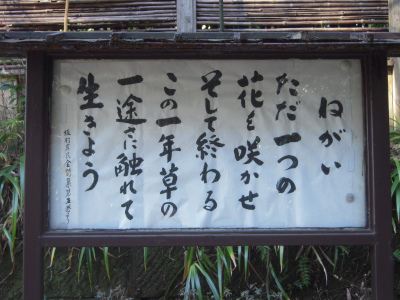 ねがい
ただ一つの
花を咲かせ
そして終わる
この一年草の
一途さに触れて
生きよう